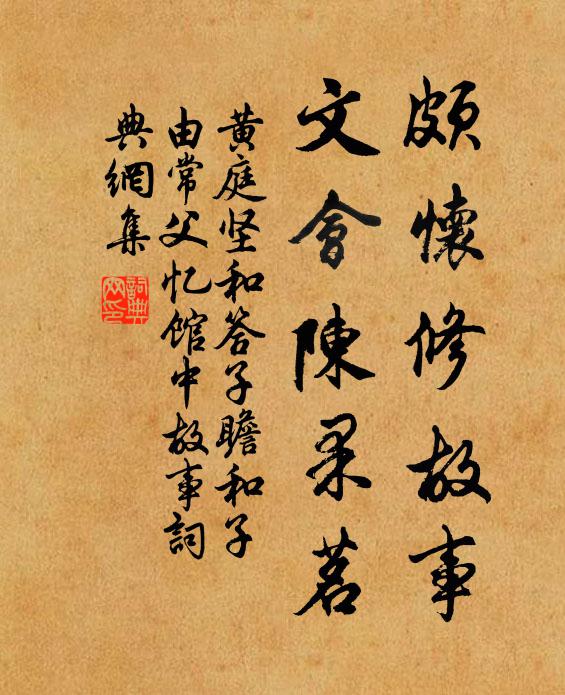 頗懷修故事
文會陳果茗
黄庭坚和答子瞻和子
由常父忆馆中故事詞
典網集
詞典
网印